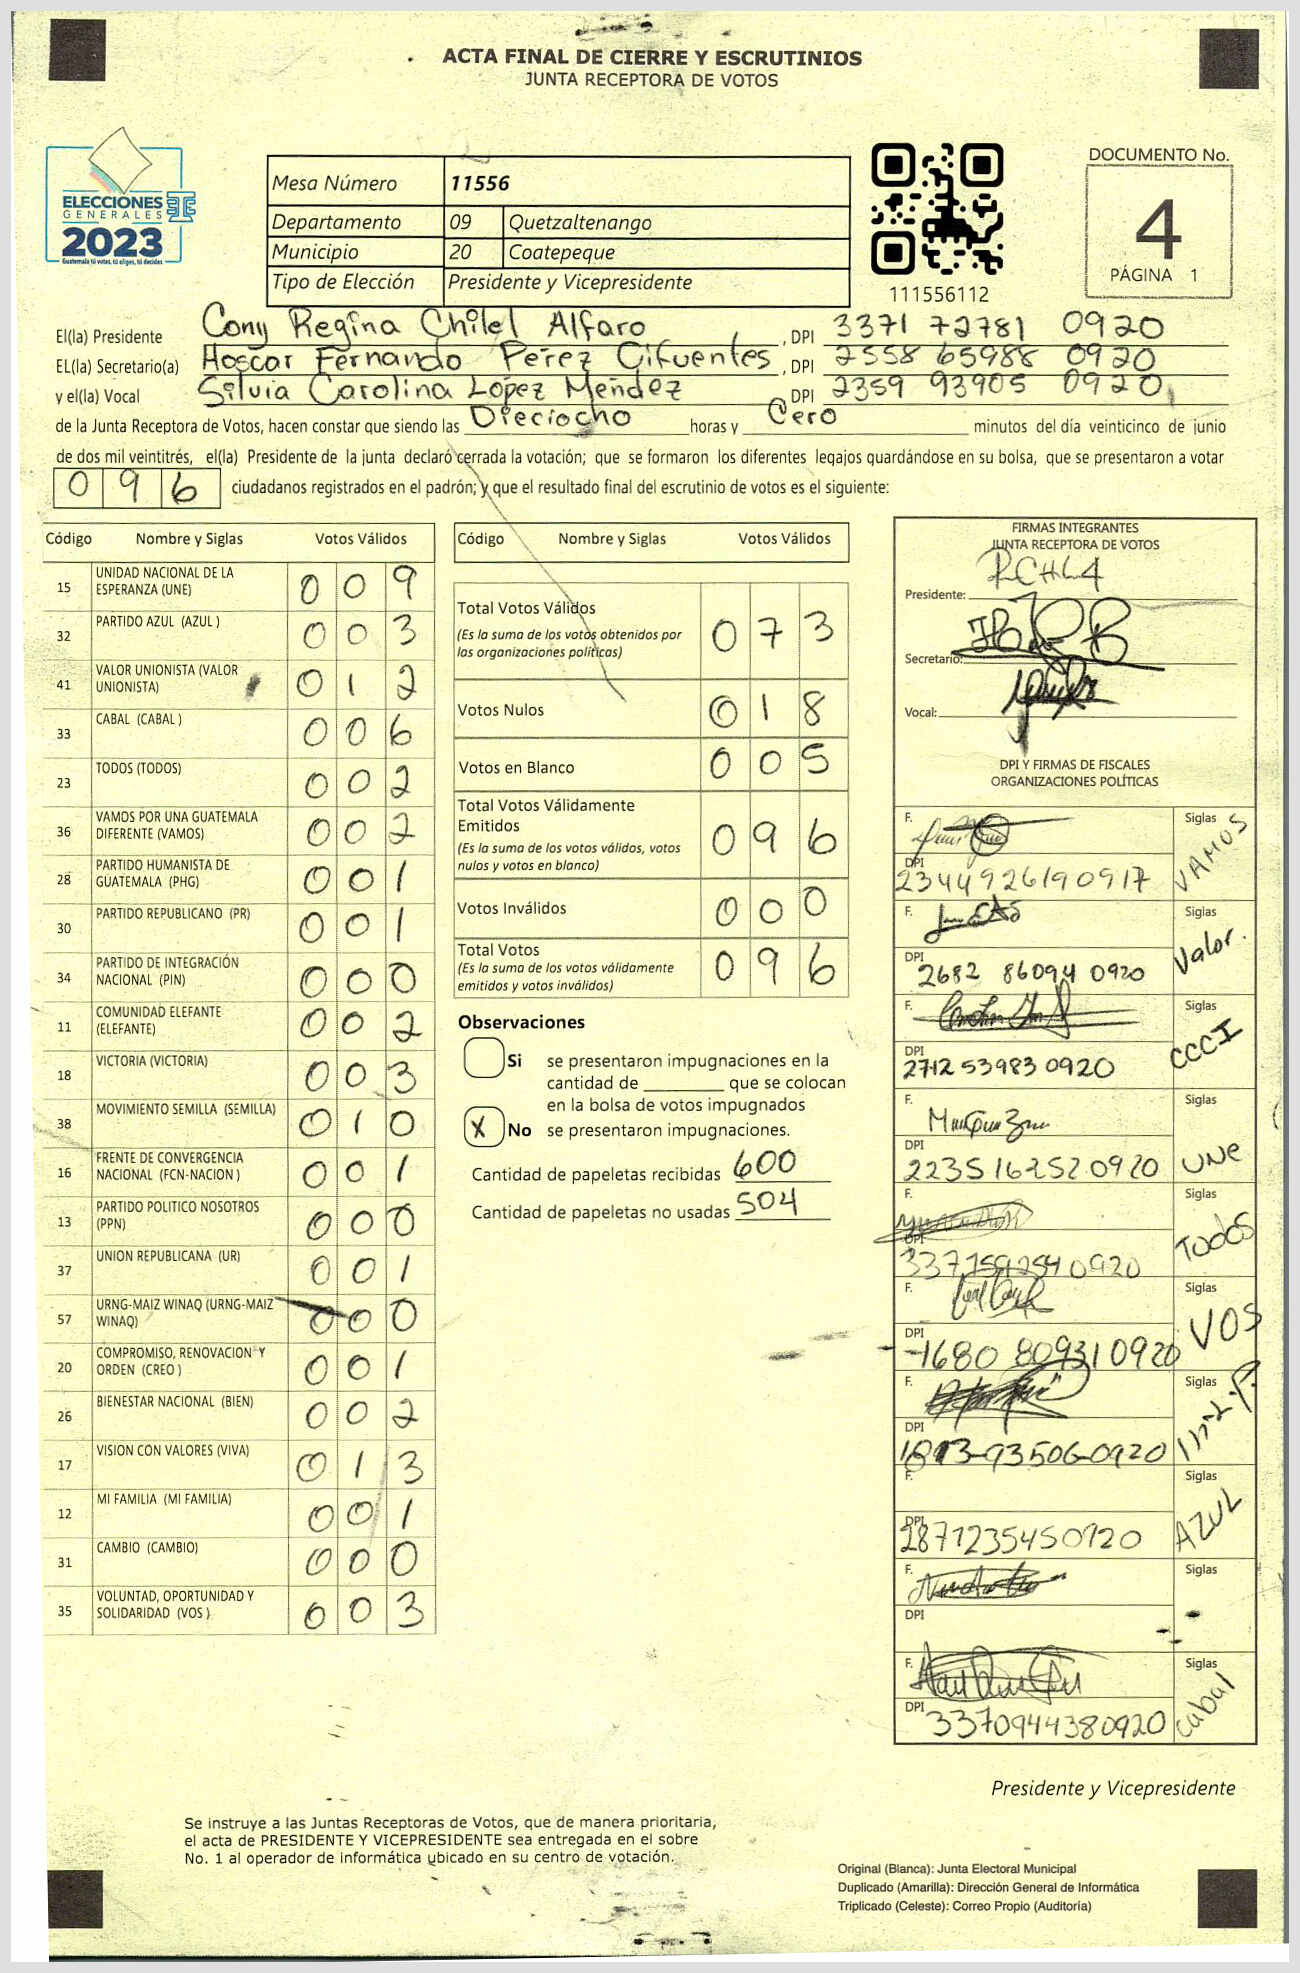 ACTA FINAL DE CIERRE Y ESCRUTINIOS
JUNTA RECEPTORA DE VOTOS
ELECCIONES
GENERALES
2023
Guatemala tú votas, tú eliges, tú decides
Mesa Número 11556
Departamento 09 Quetzaltenango
Municipio 20 Coatepeque
Tipo de Elección Presidente y Vicepresidente
111556112
DOCUMENTO No.
4
PÁGINA 1
El(la) Presidente Cony Regina Chilel Alfaro , DPI 3371 72781 0920
EL(la) Secretario(a) Hoscar Fernando Pérez Cifuentes , DPI 2558 65988 0920
y el(la) Vocal Silvia Carolina López Méndez , DPI 2359 93905 0920
de la Junta Receptora de Votos, hacen constar que siendo las Dieciocho horas y Cero minutos del día veinticinco de junio
de dos mil veintitrés, el(la) Presidente de la junta declaró cerrada la votación; que se formaron los diferentes legajos guardándose en su bolsa, que se presentaron a votar
096 ciudadanos registrados en el padrón; y que el resultado final del escrutinio de votos es el siguiente:
Código Nombre y Siglas Votos Válidos
15 UNIDAD NACIONAL DE LA ESPERANZA (UNE) 009
32 PARTIDO AZUL (AZUL ) 003
41 VALOR UNIONISTA (VALOR UNIONISTA) 012
33 CABAL (CABAL ) 006
23 TODOS (TODOS) 002
36 VAMOS POR UNA GUATEMALA DIFERENTE (VAMOS) 002
28 PARTIDO HUMANISTA DE GUATEMALA (PHG) 001
30 PARTIDO REPUBLICANO (PR) 001
34 PARTIDO DE INTEGRACIÓN NACIONAL (PIN) 000
11 COMUNIDAD ELEFANTE (ELEFANTE) 002
18 VICTORIA (VICTORIA) 003
38 MOVIMIENTO SEMILLA (SEMILLA) 010
16 FRENTE DE CONVERGENCIA NACIONAL (FCN-NACION ) 001
13 PARTIDO POLITICO NOSOTROS (PPN) 000
37 UNION REPUBLICANA (UR) 001
57 URNG-MAIZ WINAQ (URNG-MAIZ WINAQ) 000
20 COMPROMISO, RENOVACION Y ORDEN (CREO ) 001
26 BIENESTAR NACIONAL (BIEN) 002
17 VISION CON VALORES (VIVA) 013
12 MI FAMILIA (MI FAMILIA) 001
31 CAMBIO (CAMBIO) 000
35 VOLUNTAD, OPORTUNIDAD Y SOLIDARIDAD (VOS ) 003
Código Nombre y Siglas Votos Válidos
Total Votos Válidos 073
(Es la suma de los votos obtenidos por
las organizaciones políticas)
Votos Nulos 018
Votos en Blanco 005
Total Votos Válidamente
Emitidos 096
(Es la suma de los votos válidos, votos
nulos y votos en blanco)
Votos Inválidos 000
Total Votos 096
(Es la suma de los votos válidamente
emitidos y votos inválidos)
Observaciones
Si se presentaron impugnaciones en la
cantidad de ________ que se colocan
en la bolsa de votos impugnados
X No se presentaron impugnaciones.
Cantidad de papeletas recibidas 600
Cantidad de papeletas no usadas 504
FIRMAS INTEGRANTES
JUNTA RECEPTORA DE VOTOS
Presidente:
Secretario:
Vocal:
DPI Y FIRMAS DE FISCALES
ORGANIZACIONES POLÍTICAS
F. Siglas VAMOS
DPI 2344926190917
F. Siglas Valor.
DPI 2682 86094 0920
F. Siglas CCCI
DPI 2712 53983 0920
F. Siglas UNE
DPI 2235162520920
F. Siglas TODOS
DPI 3371592540920
F. Siglas VOS
DPI 1680 80931 0920
F. Siglas
DPI
F. Siglas AZUL
DPI 2871235450920
F. Siglas
DPI
F. Siglas Cabal
DPI 3370944380920
Presidente y Vicepresidente
Se instruye a las Juntas Receptoras de Votos, que de manera prioritaria,
el acta de PRESIDENTE Y VICEPRESIDENTE sea entregada en el sobre
No. 1 al operador de informática ubicado en su centro de votación.
Original (Blanca): Junta Electoral Municipal
Duplicado (Amarilla): Dirección General de Informática
Triplicado (Celeste): Correo Propio (Auditoría)